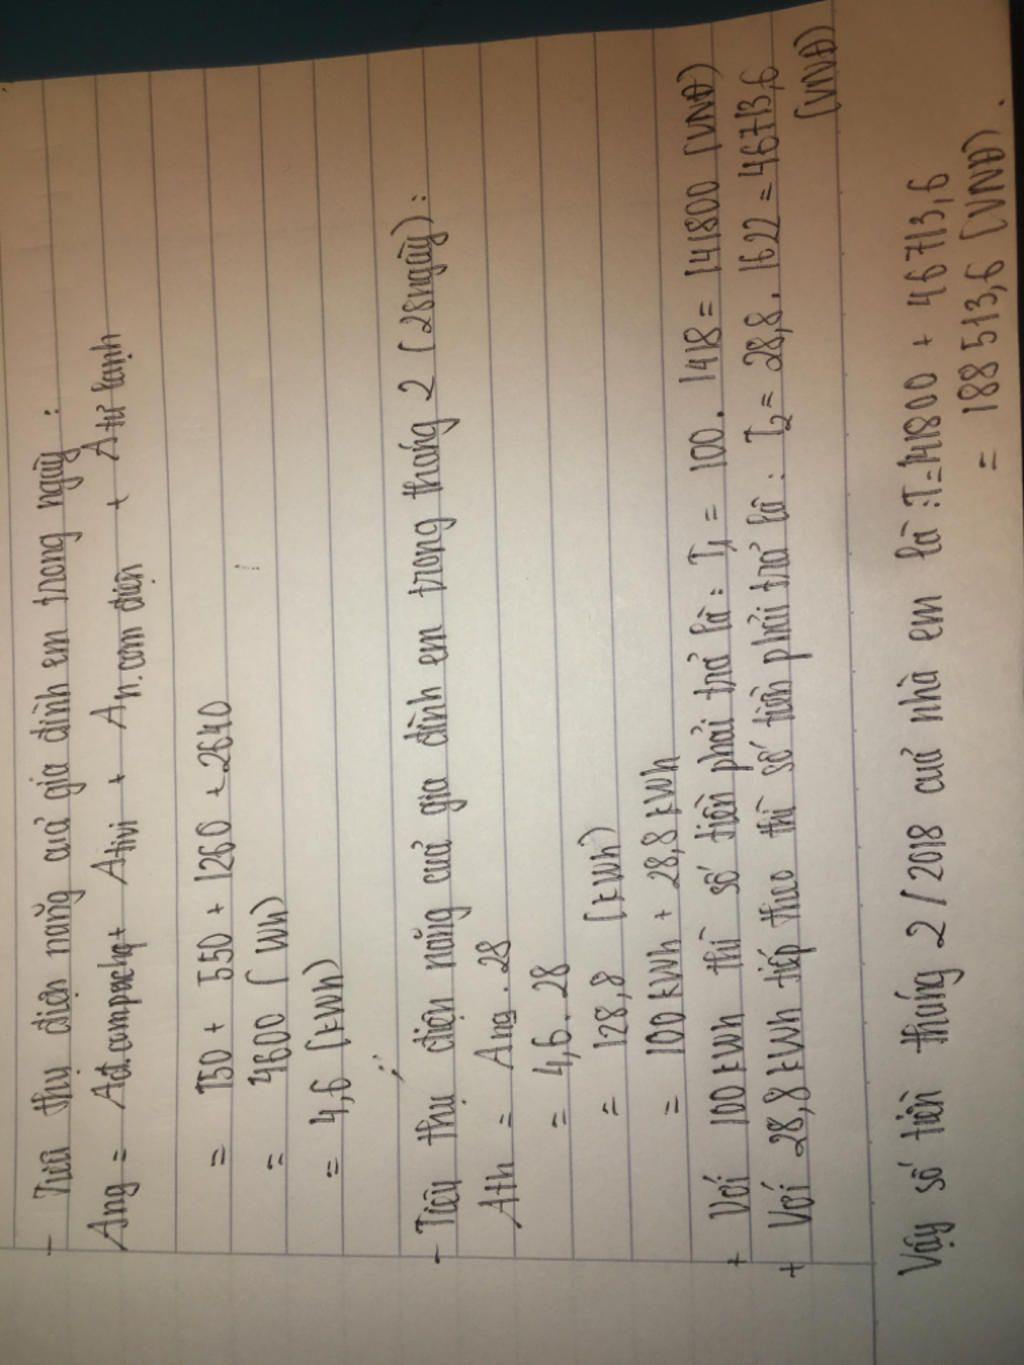 - Tiêu thụ điện năng cuả gia đình em trong ngày :
Ang = Ađ.compachq+ Ativi + An.cơm điện + Atủ lạnh
= 150 + 550 + 1260 + 2640
= 4600 ( Wh)
= 4,6 (kWh)
- Tiêu thụ điện năng cuả gia đình em trong tháng 2 (28ngày) :
Ath = Ang . 28
= 4,6 . 28
= 128,8 (kWh)
= 100 kWh + 28,8 kWh
+ Với 100 kWh thì số tiền phải trả là : T1 = 100 . 1418 = 141800 (VNĐ)
+ Với 28,8 kWh tiếp theo thì số tiền phải trả là : T2 = 28,8 . 1622 = 46713,6
(VNĐ)
Vậy số tiền tháng 2/2018 cuả nhà em là :T=141800 + 46713,6
= 188 513,6 (VNĐ).